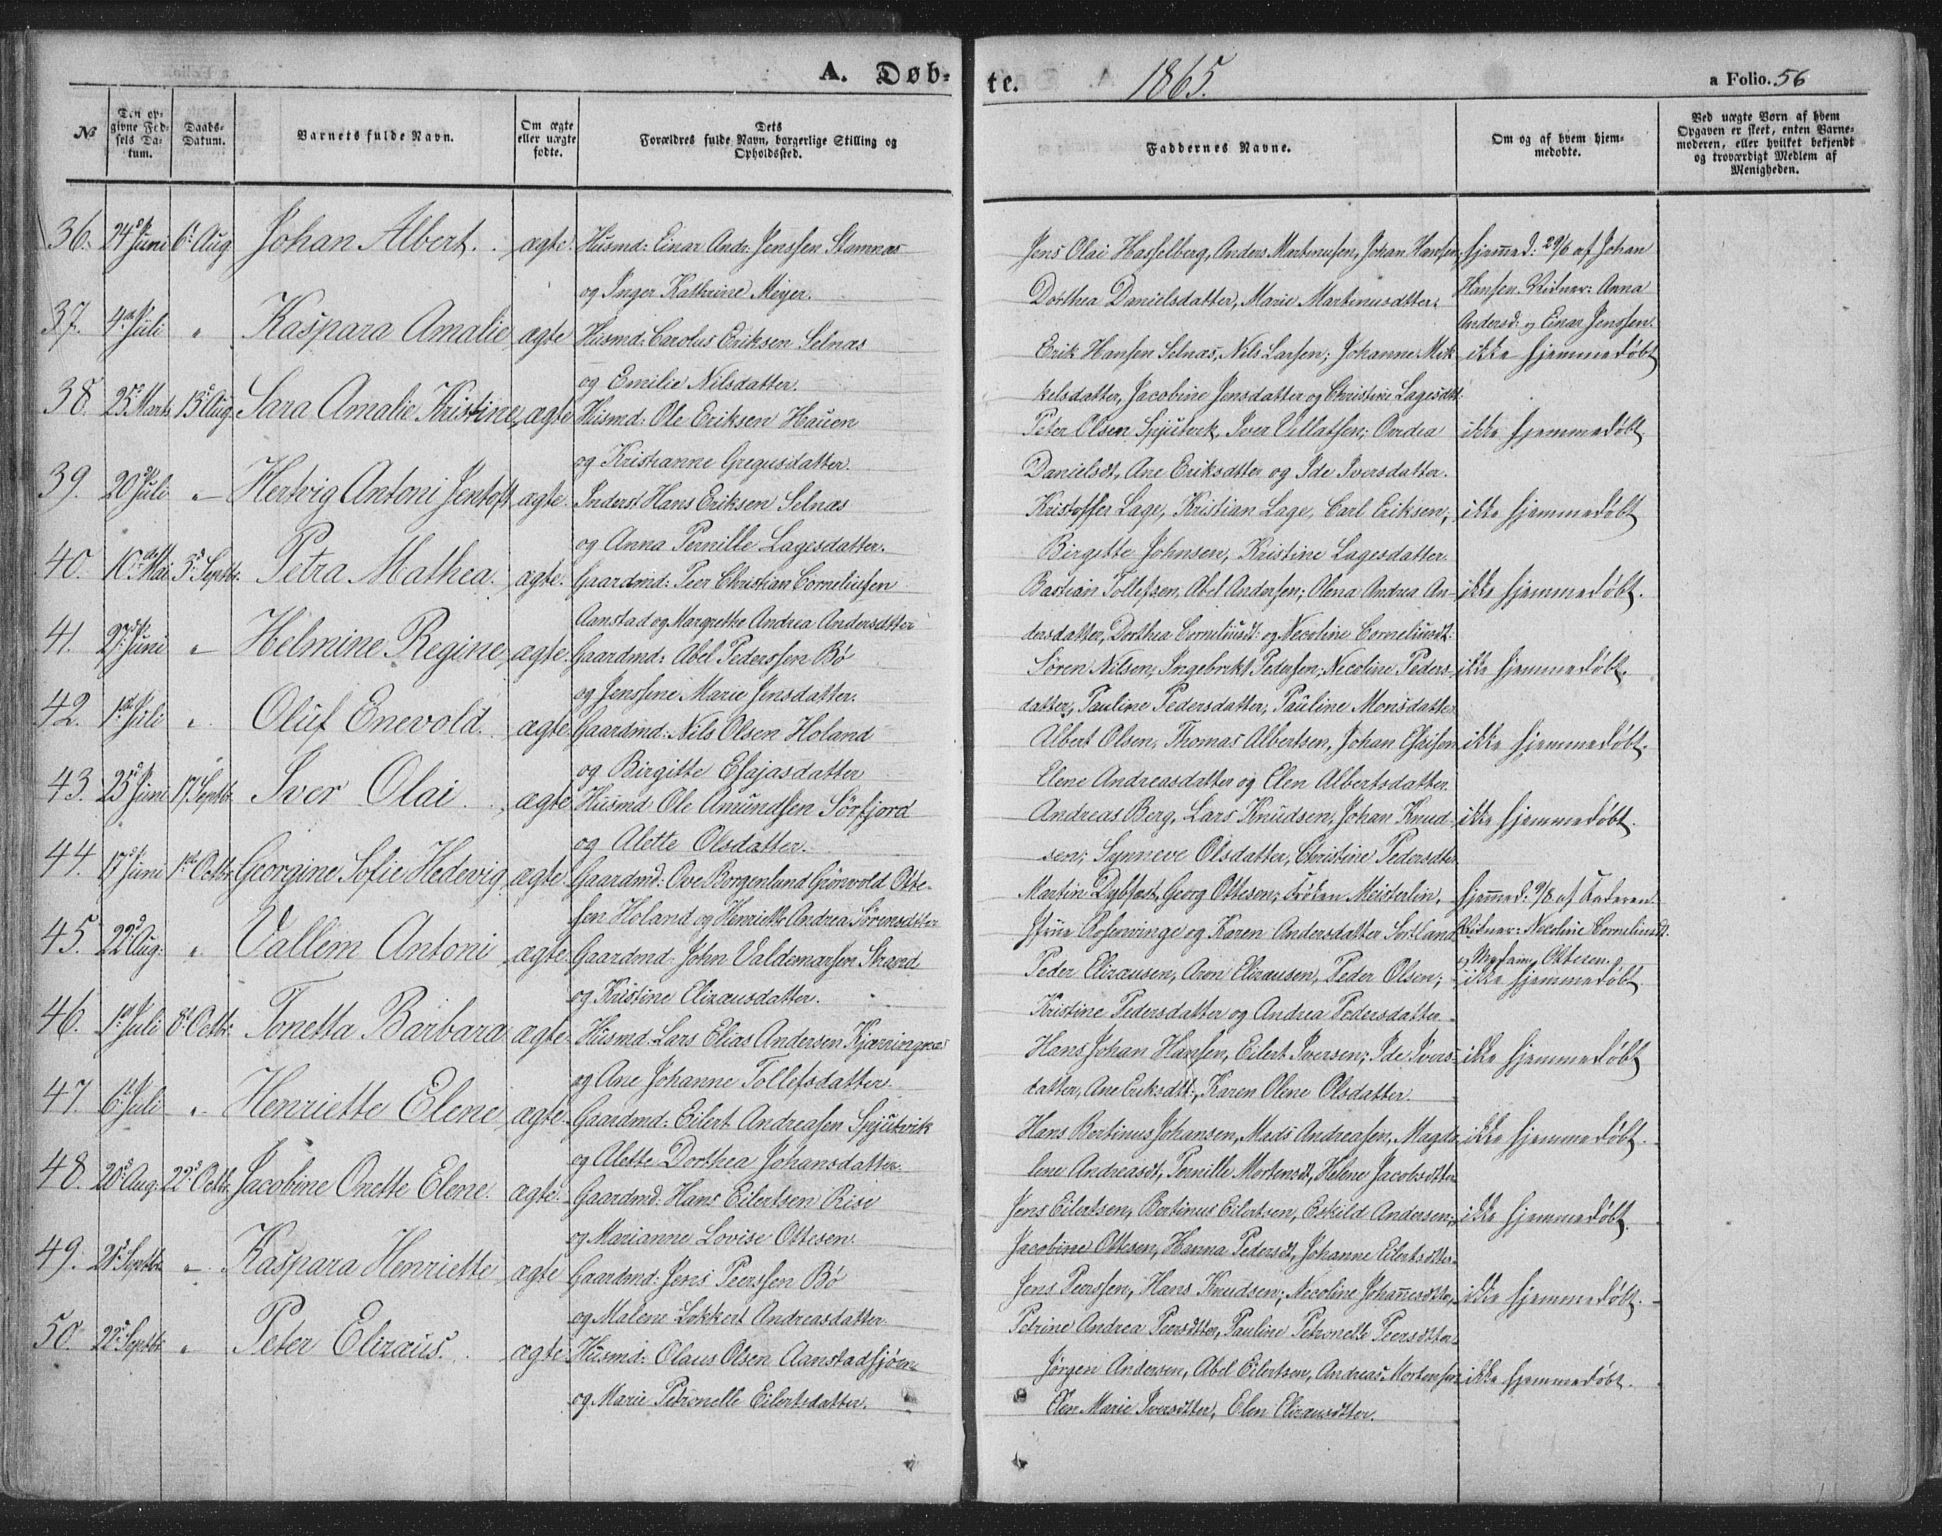 A. Døb-
te. 1865. a Folio. 56
No
Den op-
givne Fød-
sels Da-
tum.
Daabs-
Datum.
Barnets fulde Navn.
Om ægte
eller uægte
fødte.
Dets
Forældres fulde Navn, borgerlige Stilling og
Opholdssted.
Faddernes Navne.
Om og af hvem hjem-
medøbte.
Ved uægte Børn af hvem
Opgaven er skeet, enten Barne-
moderen, eller hvilket bekjendt
og troværdigt Medlem af
Menigheden.
36. 24de Juni 6te Aug. Johan Albert. ægte. Husmd: Einar Andr: Jenssen Stamnæs
og Inger Kathrine Meyer.
Jens Olai Hasselberg, Anders Martinussen, Johan Hansen,
Dorthea Danielsdatter, Marie Martinusdtter.
hjemmed: 29/6 af Johan
Hansen. Vidner: Anna
Andersd: og Einar Jenssen.
37. 4de Juli " Kaspara Amalie ægte Husmd: Carolus Eriksen Selnæs
og Emilie Nilsdatter.
Erik Hansen Selnæs, Nils Larsen; Johanne Mik-
kelsdatter, Jacobine Jensdatter og Christine Lagesdtt:
ikke hjemmedøbt
38. 25de Marts 13de Aug. Sara Amalie Kristine, ægte Husmd: Ole Eriksen Hauen
og Kristianne Gregusdatter.
Peter Olsen Spjutvik, Iver Villatsen; Ovedia
Danielsdt, Ane Eriksdtter og Ide Iversdatter.
ikke hjemmedøbt
39. 20de Juli " Hertvig Antoni Jentoft ægte. Inderst Hans Eriksen Selnæs
og Anna Pernille Lagesdatter.
Kristoffer Lage, Kristian Lage, Carl Eriksen;
Birgitte Johnsen, Kristine Lagesdatter
ikke hjemmedøbt
40. 10de Mai 3de Septbr. Petra Mathea. ægte. Gaardmd: Peer Christian Corneliussen
Aanstad og Margrethe Andrea Andersdtter
Bastian Tollefsen, Abel Andersen; Olena Andrea An-
dersdatter, Dorthea Corneliusdt: og Necoline Corneliusdt:
ikke hjemmedøbt.
41. 27de Juni " Helmine Regine, ægte Gaardmd: Abel Pederssen Bø
og Jenssine Marie Jensdatter.
Søren Nilsen, Ingebrikt Pedersen, Necoline Peders-
datter, Pauline Pedersdatter, Pauline Monsdatter
ikke hjemmedøbt.
42. 1ste Juli " Oluf Enevold. ægte Gaardmd: Nils Olsen Holand
og Birgitte Esajasdatter
Albert Olsen, Thomas Albertsen, Johan Esaisen
Elene Andreasdatter og Elen Albertsdatter.
ikke hjemmedøbt.
43. 25de Juni 17de Septbr. Iver Olai. ægte Husmd: Ole Amundsen Sörfjord
og Alette Olsdatter.
Andreas Berg, Lars Knudsen, Johan Knud-
sen; Synneve Olsdatter, Christine Pedersdtter
ikke hjemmedøbt.
44. 17de Juni 1ste Octbr. Georgine Sofie Hedevig, ægte Gaardmd: Ove Borgenlund Grönvold Otte-
sen Holand og Henriette Andrea Sörensdtter
Martin Dybfest, Georg Ottesen; Frøken Meisterlin,
Rosenvinge og Karen Andersdatter Sortland.
hjemmed: 9/8 af Faderen
Vidner: Necoline Corneliusd.
og Madam Ottesen.
45. 22de Aug: " Vallem Antoni ægte Gaardmd: John Valdemarsen Strand
og Kristine Elizausdatter.
Peder Elizausen, Aron Elizausen, Peder Olsen;
Kristine Pedersdatter og Andrea Pedersdatter
ikke hjemmedøbt.
46. 1ste Juli 8de Octbr. Tonetta Barbara ægte Husmd: Lars Elias Andersen Kjærringnæs
og Ane Johanne Tollefsdatter.
Hans Johan Hansen, Eilert Iversen; Ide Ivers-
datter, Ane Eriksdt:, Karen Olene Olsdatter.
ikke hjemmedøbt
47. 6te Juli " Henriette Elene ægte Gaardmd: Eilert Andreassen Spjutvik
og Alette Dorthea Johansdatter
Hans Bertinus Johansen, Mads Andreasen, Magda-
lene Andreasdt, Pernille Mortensdt, Helene Jacobsdtter
ikke hjemmedøbt.
48. 20de Aug: 22de Octbr. Jacobine Onette Elene. ægte. Gaardmd: Hans Eilertsen Rise
og Marianne Lovise Ottesen.
Jens Eilertsen, Bertinus Eilertsen, Eskild Andersen;
Jacobine Ottesen, Hanna Pedersdt, Johanne Eilertsdtter
ikke hjemmedøbt.
49. 21de Septbr. " Kaspara Henriette ægte Gaardmd: Jens Peerssen Bö
og Malene Lokkert Andreasdatter
Jens Peerssen, Hans Knudsen; Necoline Johannesdtter,
Petrine Andrea Peersdtter, Pauline Petronelle Peersdtter
ikke hjemmedøbt.
50. 22de Septbr. " Peter Elizæus. ægte Husmd: Olaus Olsen Aanstadsjöen
og Marie Petronelle Eilertsdatter.
Jørgen Andersen, Abel Eilertsen, Andreas Mortensen
Elen Marie Iversdtter, Elen Elizausdtter.
ikke hjemmedøbt.